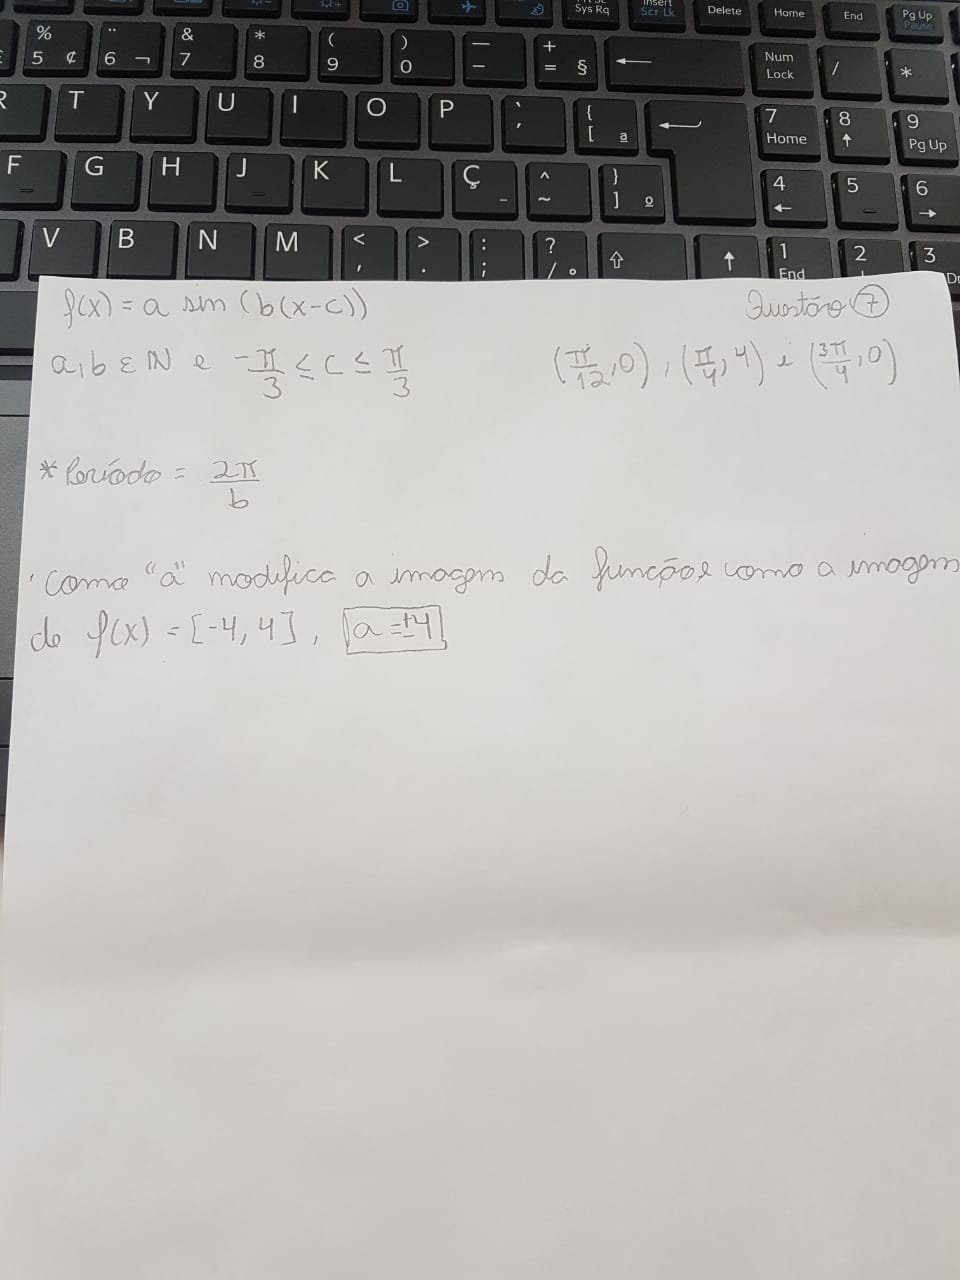 Sys Rq
Insert
Scr Lk
Delete
Home
End
Pg Up
Pause
%
5 ¢
¨
6 ¬
&
7
*
8
(
9
)
0
—
–
+
= §
Num
Lock
/
*
R
T
Y
U
I
O
P
`
´
{
[ ª
7
Home
8
9
Pg Up
F
G
H
J
K
L
Ç
^
~
}
] º
4
5
6
V
B
N
M
<
,
>
.
:
;
?
/ °
1
End
2
3
f(x) = a sin (b(x-c)) Questão 7
a, b ∈ ℕ e -π/3 ≤ c ≤ π/3 (π/12, 0), (π/4, 4) e (3π/4, 0)
* Período = 2π/b
Como "a" modifica a imagem da função e como a imagem
de f(x) = [-4, 4], a = ±4